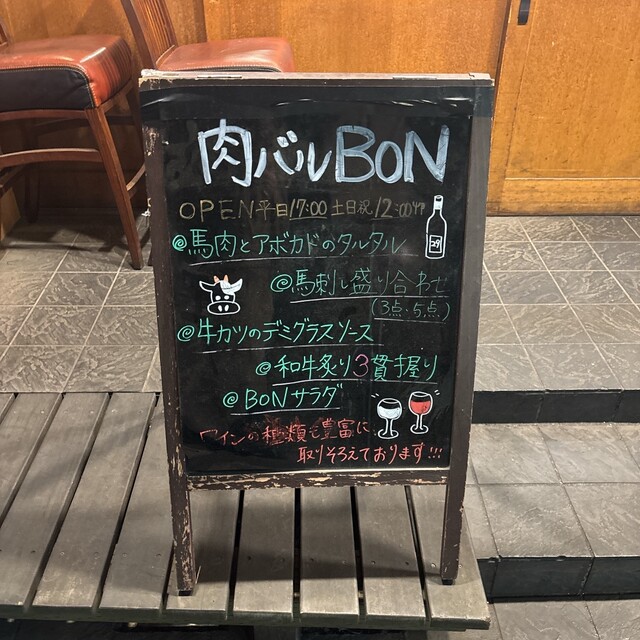 肉バルBON
OPEN平日17:00 土日祝12:00
@馬肉とアボカドのタルタル
@馬刺し盛り合わせ
(3点・5点)
@牛カツのデミグラスソース
@和牛炙り3貫握り
@BONサラダ
ワインの種類も豊富に
取りそろえております!!!